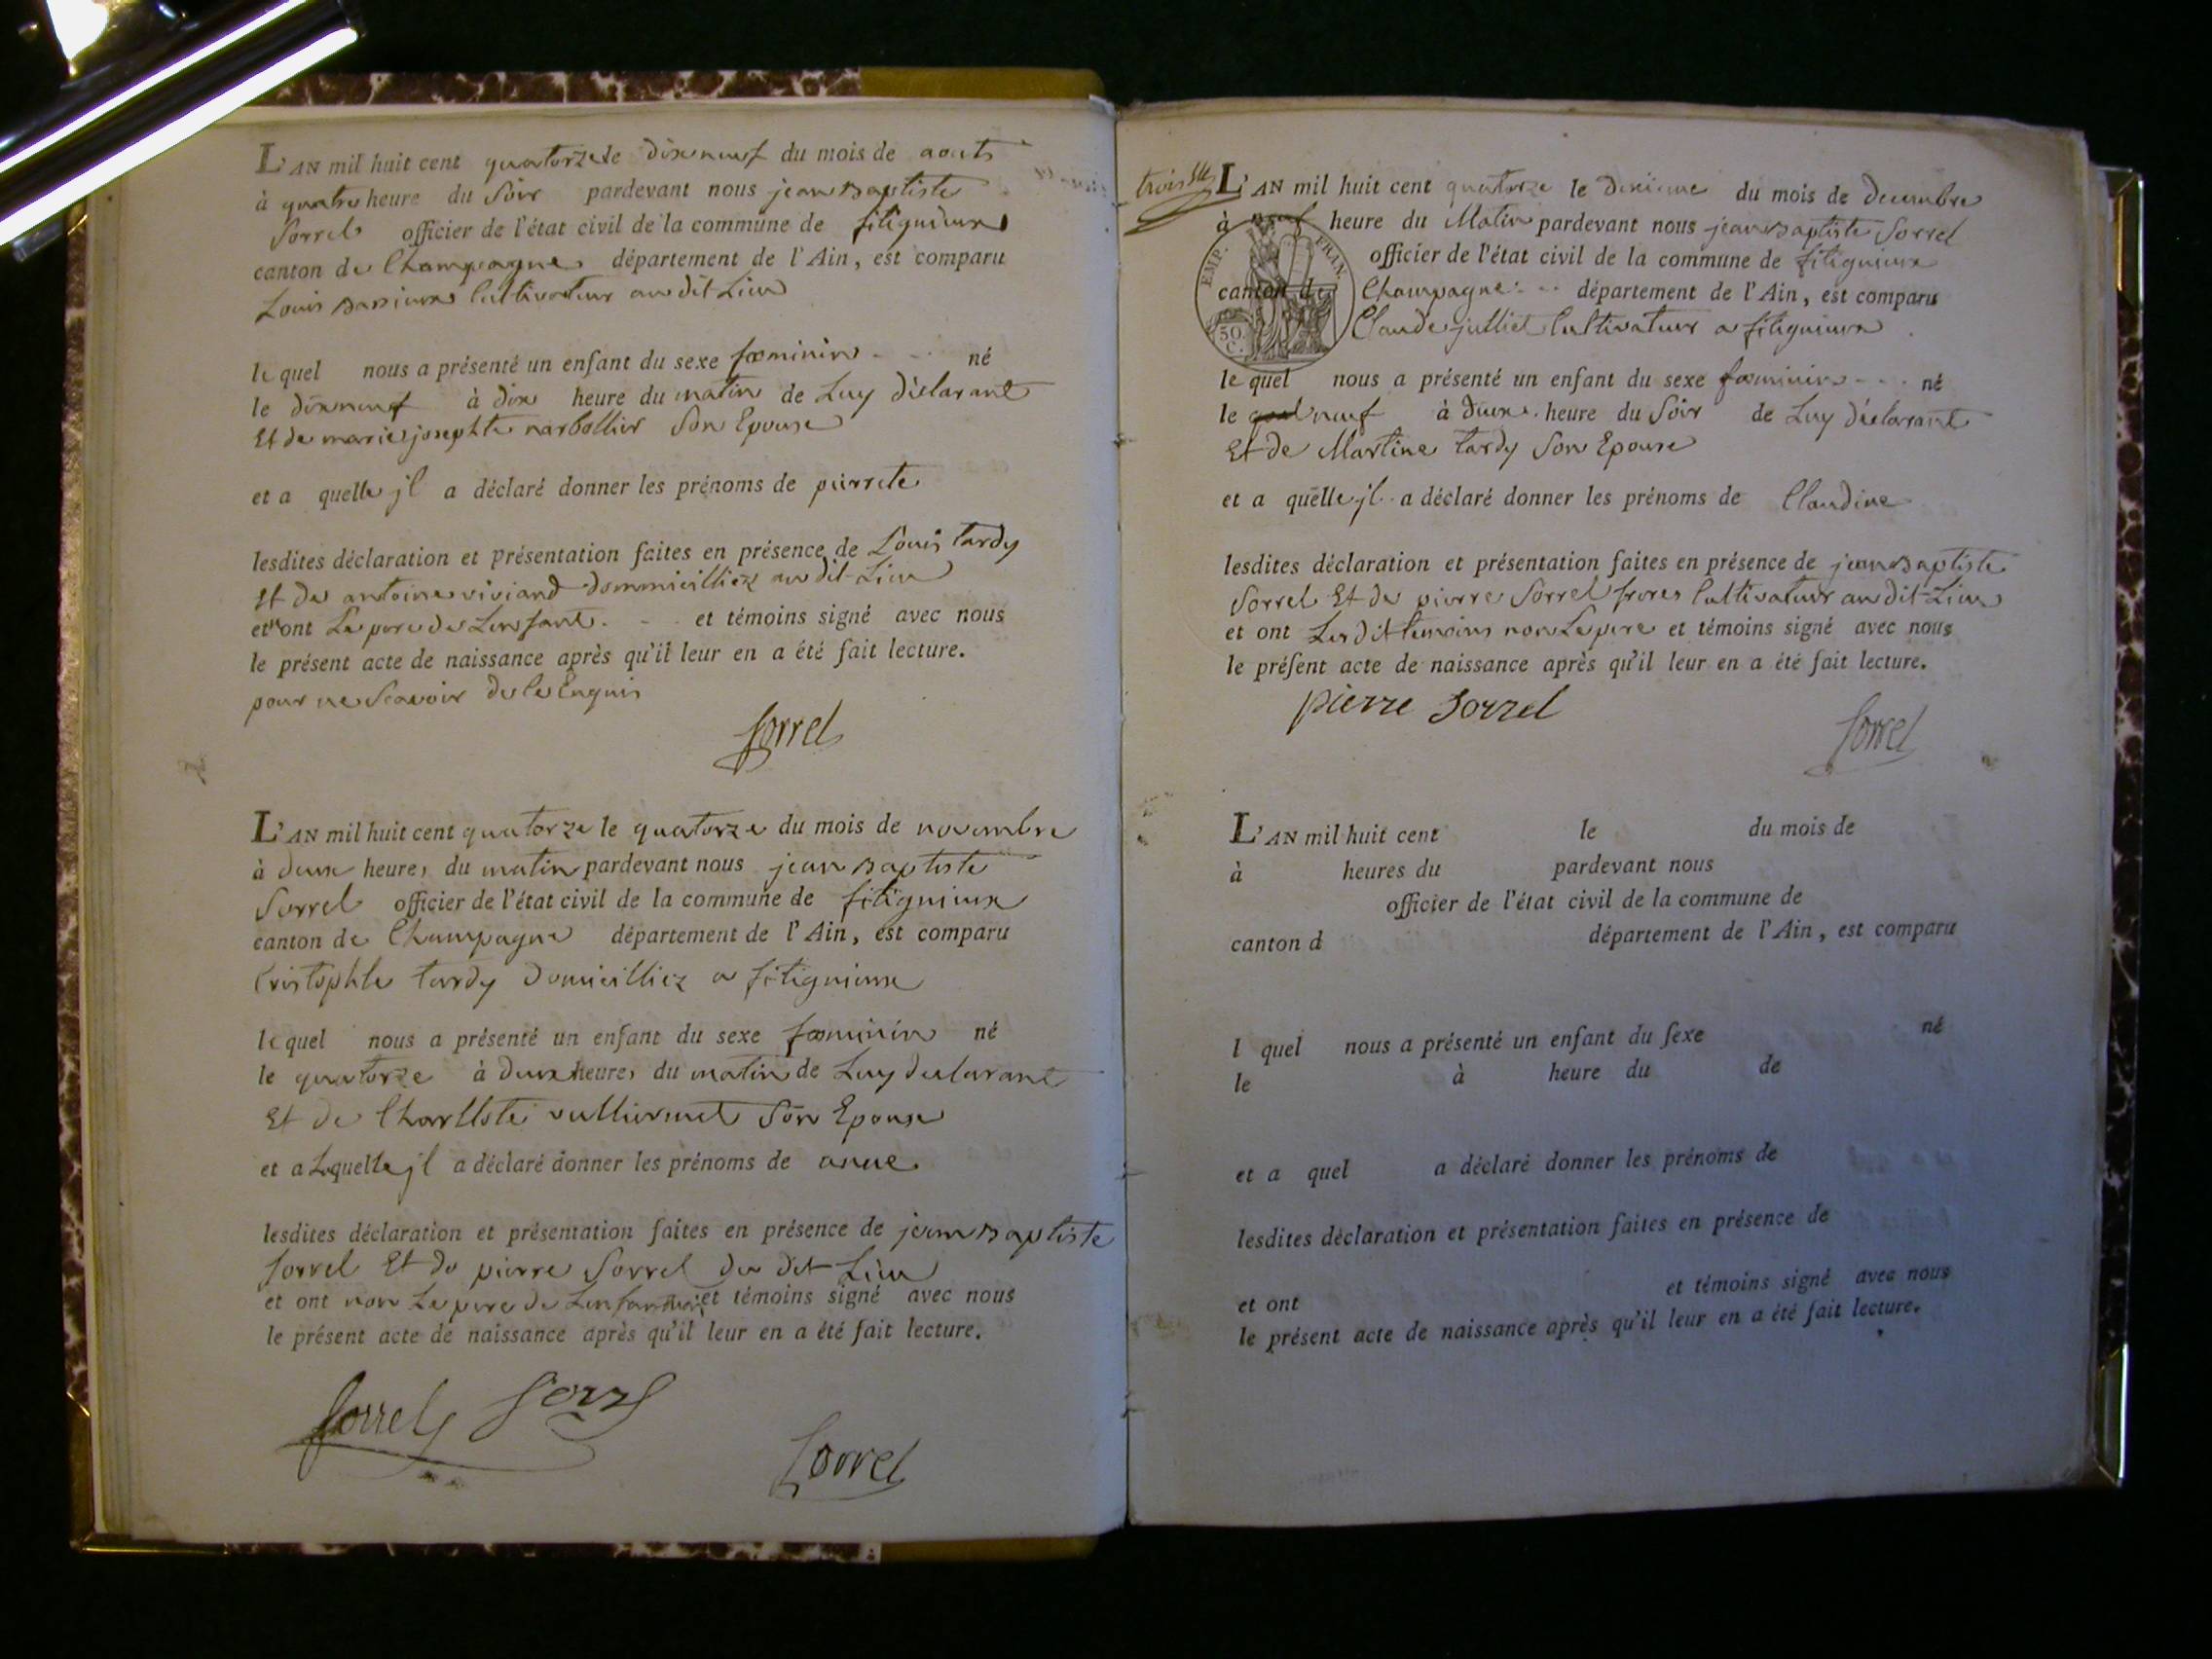 L'AN mil huit cent quatorze le dixneuf du mois de aouts
à quatre heure du Soir pardevant nous jean Baptiste
Sorrel officier de l'état civil de la commune de fitignieux
canton de Champagne département de l'Ain, est comparu
Louis Cultivateur au dit Lieu
le quel nous a présenté un enfant du sexe fœminin né
le dixneuf à dix heure du matin de Luy déclarant
Et de marie josephte narbollier Son Epouse
et a quelle jl a déclaré donner les prénoms de pierrete
lesdites déclaration et présentation faites en présence de Louis tardy
Et de antoine viviand dommicilliez au dit-Lieu
et ont Le pere de Lenfant. et témoins signé avec nous
le présent acte de naissance après qu'il leur en a été fait lecture.
pour ne Scavoir de ce Enquis
Sorrel
L'AN mil huit cent quatorze le quatorze du mois de novembre
à deux heures du matin pardevant nous jean Baptiste
Sorrel officier de l'état civil de la commune de fitignieux
canton de Champagne département de l'Ain, est comparu
Cristophle tardy Domicilliez a fitignieux
le quel nous a présenté un enfant du sexe fœminin né
le quatorze à deux heures du matin de Luy declarant
Et de Charllote vulliermet Son Epouse
et a Laquelle jl a déclaré donner les prénoms de anne
lesdites déclaration et présentation faites en présence de jean Baptiste
Sorrel Et de pierre Sorrel du dit Lieu
et ont non Le pere de Lenfant et témoins signé avec nous
le présent acte de naissance après qu'il leur en a été fait lecture.
Sorrel Sorrel
Sorrel
trois
L'AN mil huit cent quatorze le dixieme du mois de Decembre
à neuf heure du Matin pardevant nous jean Baptiste Sorrel
EMP. FRAN.
officier de l'état civil de la commune de fitignieux
canton de Champagne département de l'Ain, est comparu
50 C.
Claude julliet Cultivateur a fitignieux
le quel nous a présenté un enfant du sexe fœminin né
le neuf à deux heure du Soir de Luy déclarant
Et de Martine tardy Son Epouse
et a quelle jl a déclaré donner les prénoms de Claudine
lesdites déclaration et présentation faites en présence de jean Baptiste
Sorrel Et de pierre Sorrel freres Cultivateur au dit-Lieu
et ont Les dit temoins non Le pere et témoins signé avec nous
le préſent acte de naissance après qu'il leur en a été fait lecture.
pierre Sorrel Sorrel
L'AN mil huit cent le du mois de
à heures du pardevant nous
officier de l'état civil de la commune de
canton d département de l'Ain, est comparu
l quel nous a présenté un enfant du ſexe né
le à heure du de
et a quel a déclaré donner les prénoms de
lesdites déclaration et présentation faites en présence de
et ont et témoins signé avec nous
le présent acte de naissance après qu'il leur en a été fait lecture.